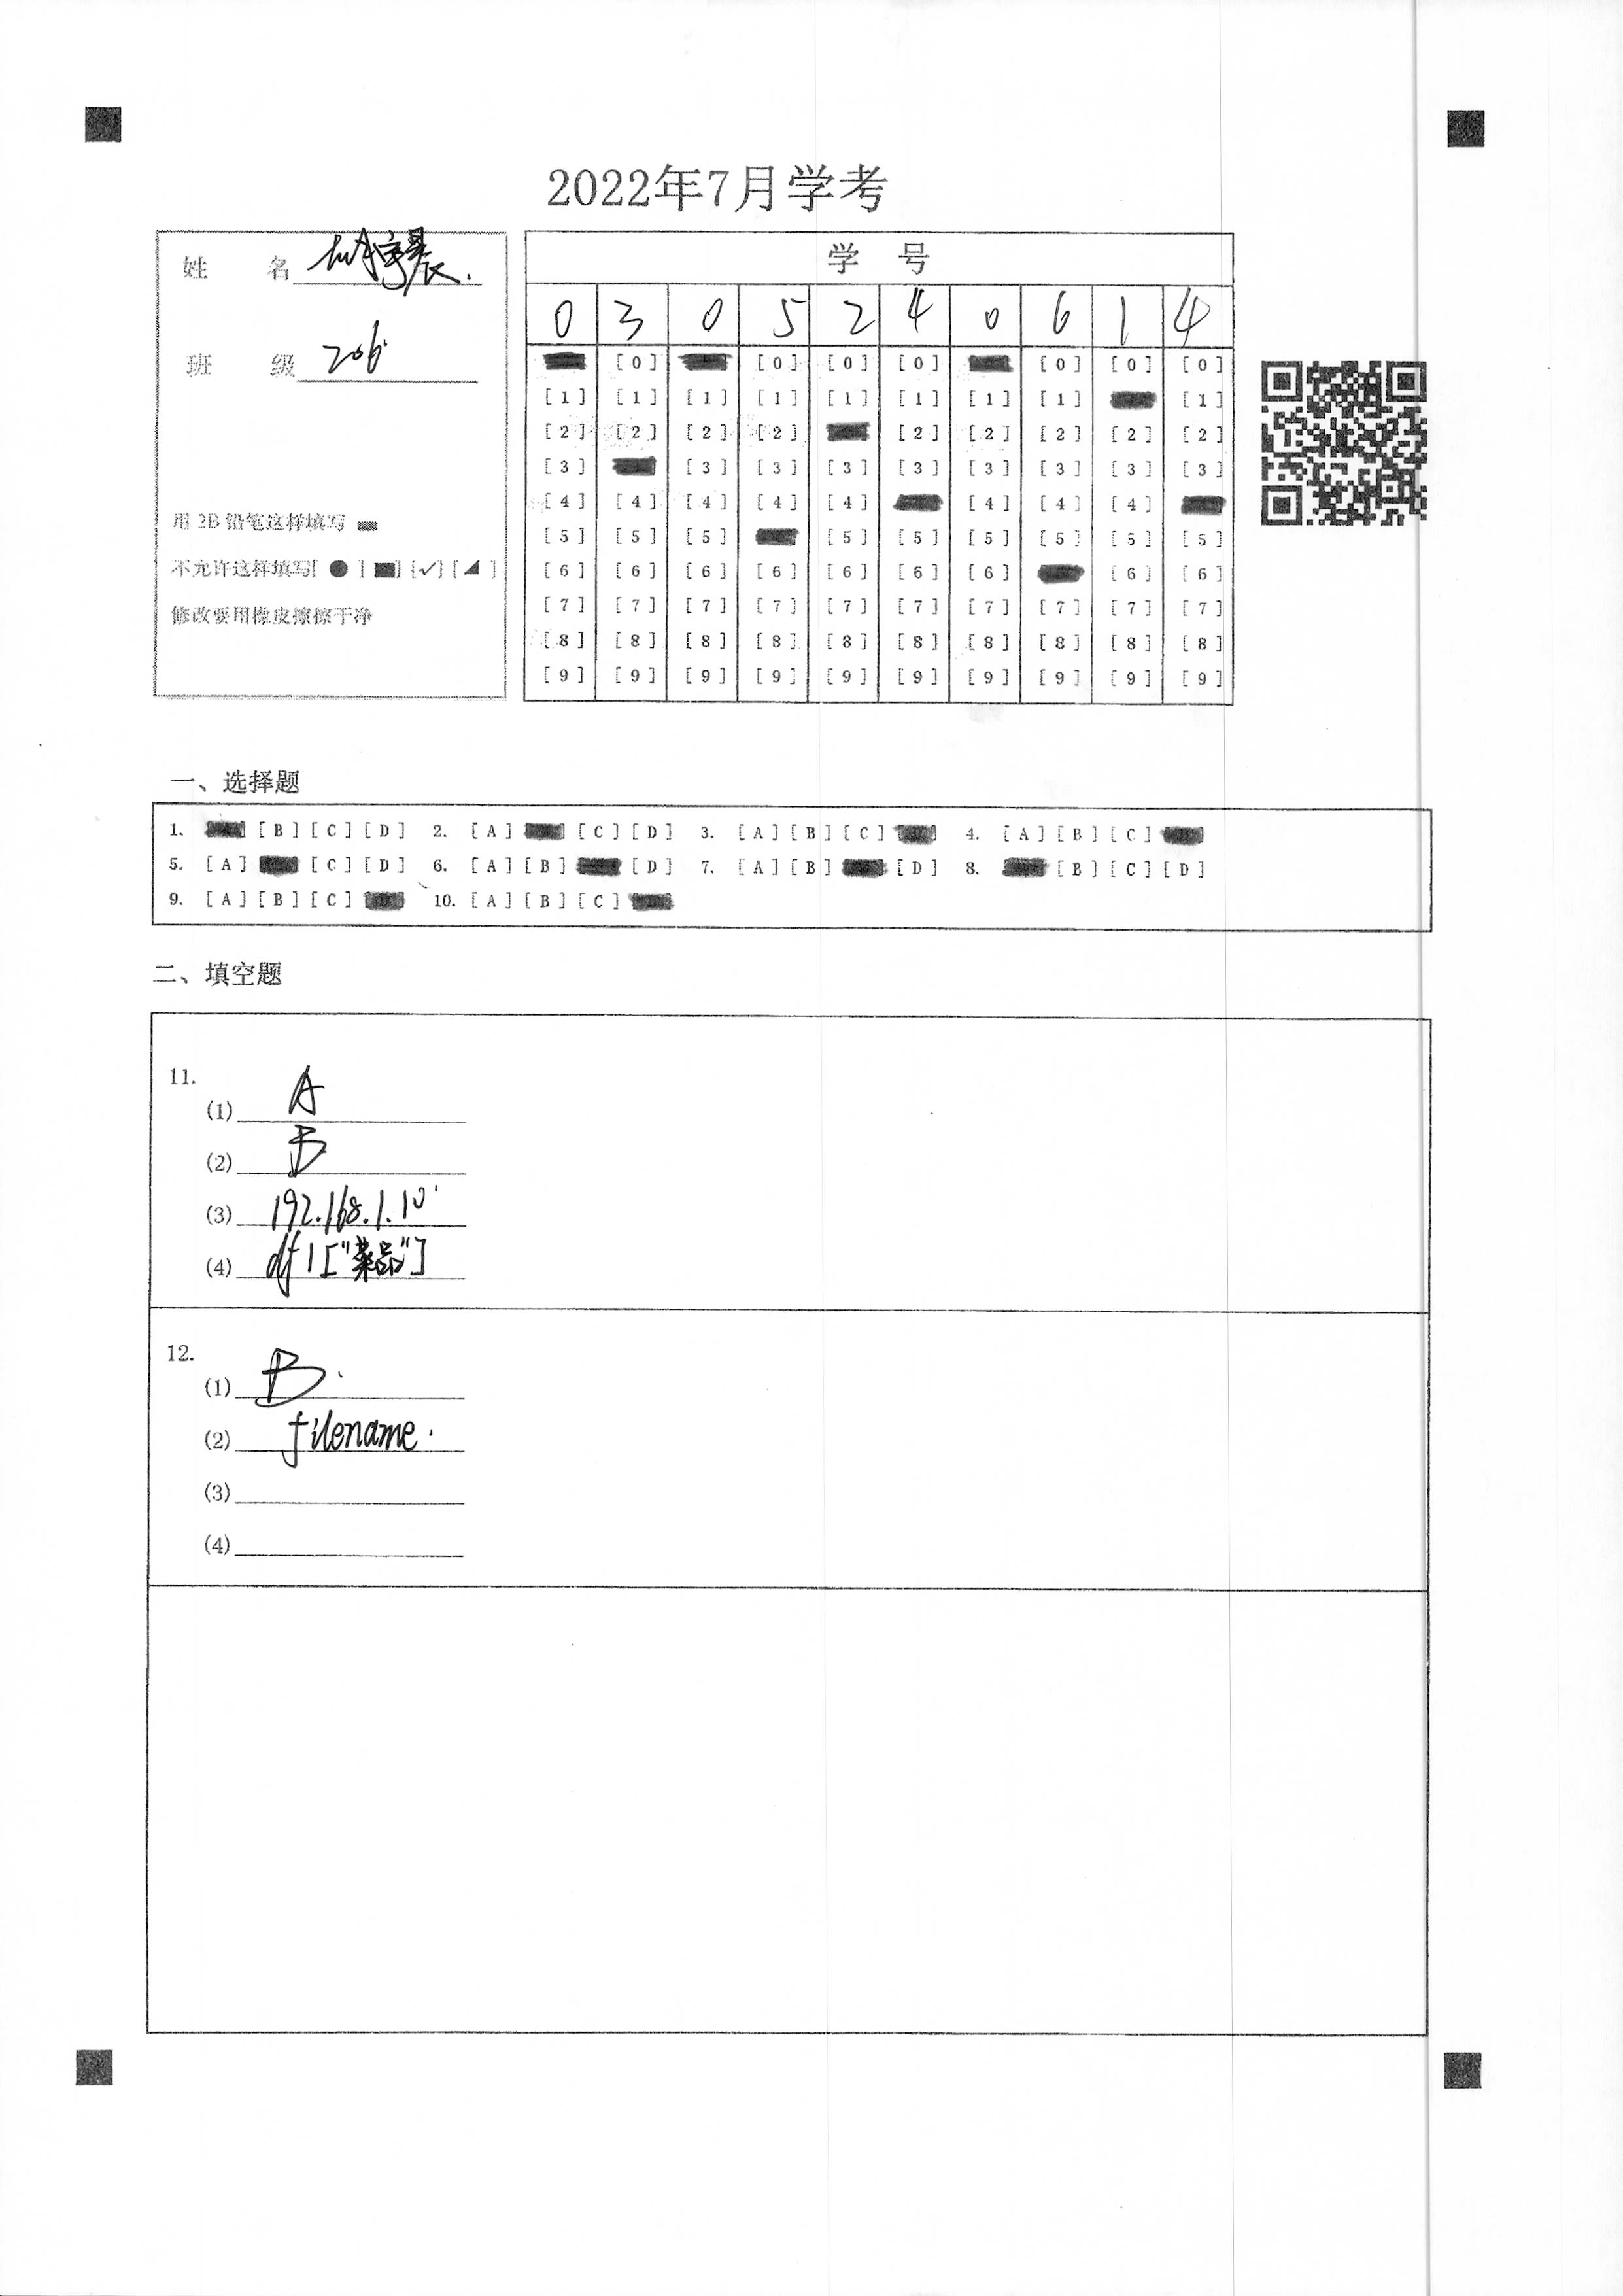 2022年7月学考
姓 名
班 级 206
用 2B 铅笔这样填写
不允许这样填写[ ● ] [■] [✓] [◢ ]
修改要用橡皮擦擦干净
学 号
0 3 0 5 2 4 0 6 1 4
[0] [0] [0] [0] [0] [0] [0]
[1] [1] [1] [1] [1] [1] [1] [1] [1]
[2] [2] [2] [2] [2] [2] [2] [2] [2]
[3] [3] [3] [3] [3] [3] [3] [3] [3]
[4] [4] [4] [4] [4] [4] [4] [4]
[5] [5] [5] [5] [5] [5] [5] [5] [5]
[6] [6] [6] [6] [6] [6] [6] [6] [6]
[7] [7] [7] [7] [7] [7] [7] [7] [7] [7]
[8] [8] [8] [8] [8] [8] [8] [8] [8] [8]
[9] [9] [9] [9] [9] [9] [9] [9] [9] [9]
一、选择题
1. [B] [C] [D] 2. [A] [C] [D] 3. [A] [B] [C] 4. [A] [B] [C]
5. [A] [C] [D] 6. [A] [B] [D] 7. [A] [B] [D] 8. [B] [C] [D]
9. [A] [B] [C] 10. [A] [B] [C]
二、填空题
11.
(1) A
(2) B
(3) 192.168.1.10
(4) df1["菜品"]
12.
(1) B
(2) filename
(3)
(4)